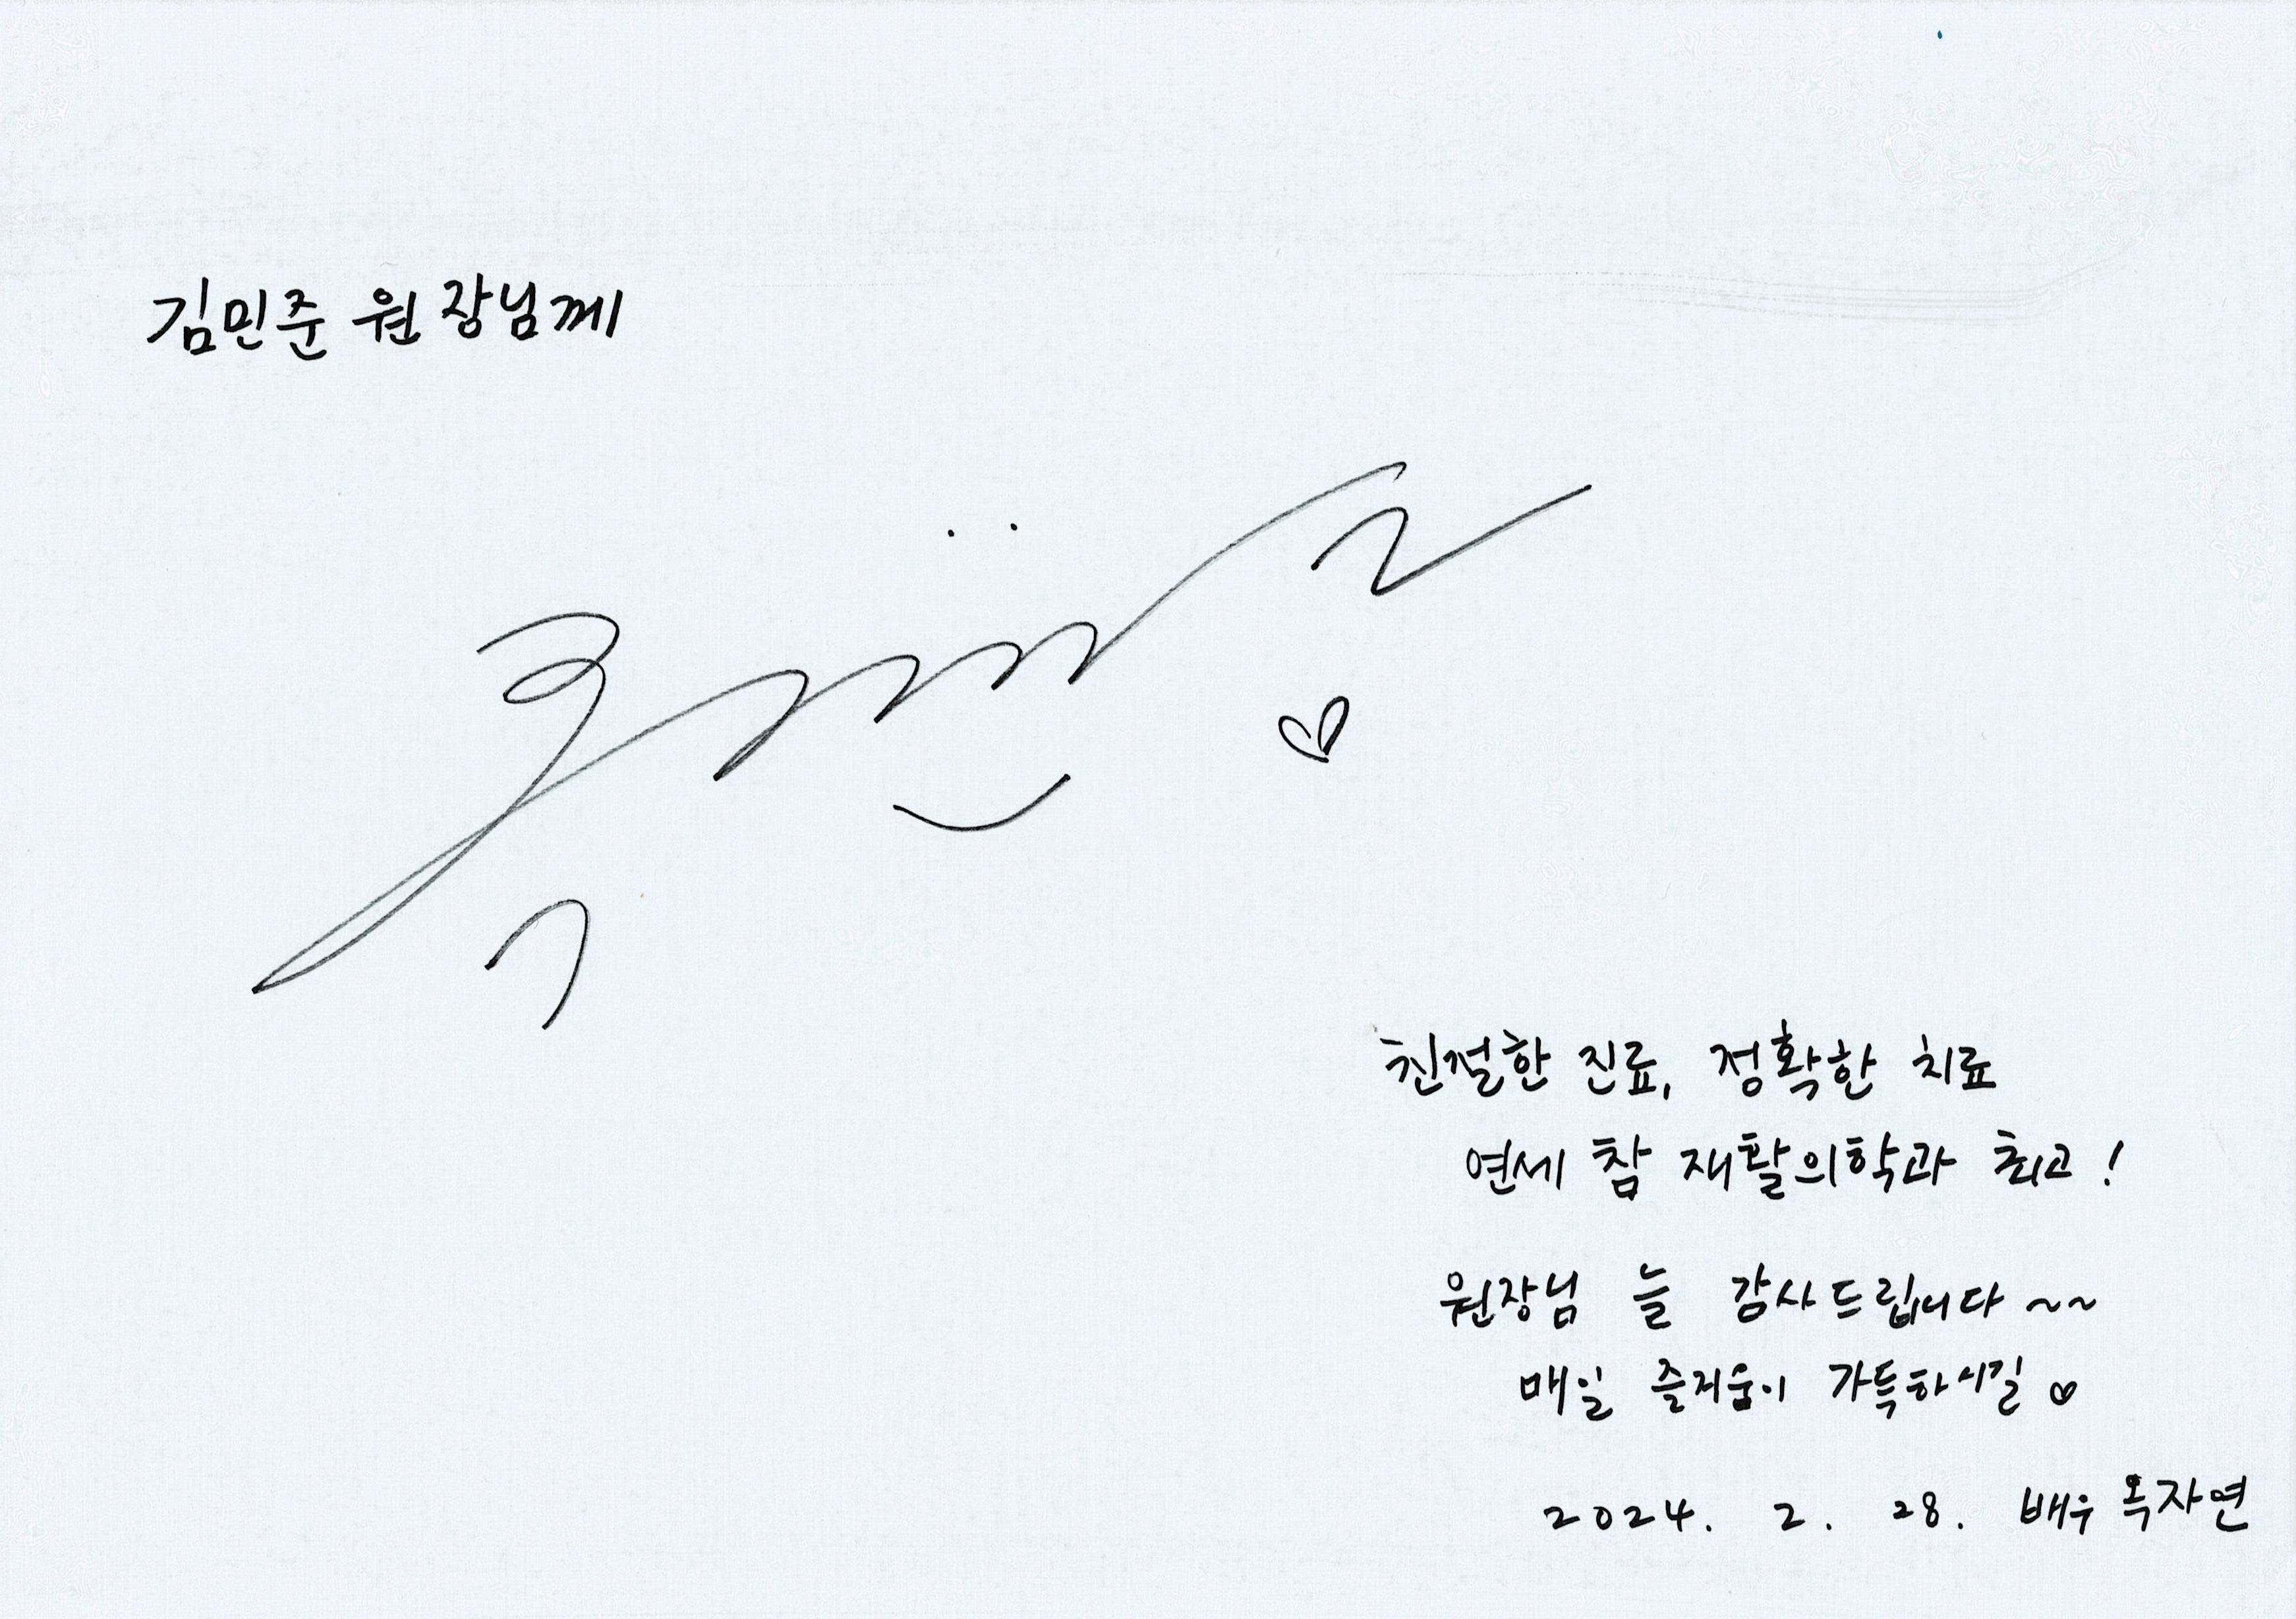 김민준 원장님께
친절한 진료, 정확한 치료
연세 참 재활의학과 최고!
원장님 늘 감사드립니다~~
매일 즐거움이 가득하시길♡
2024. 2. 28. 배우 옥자연